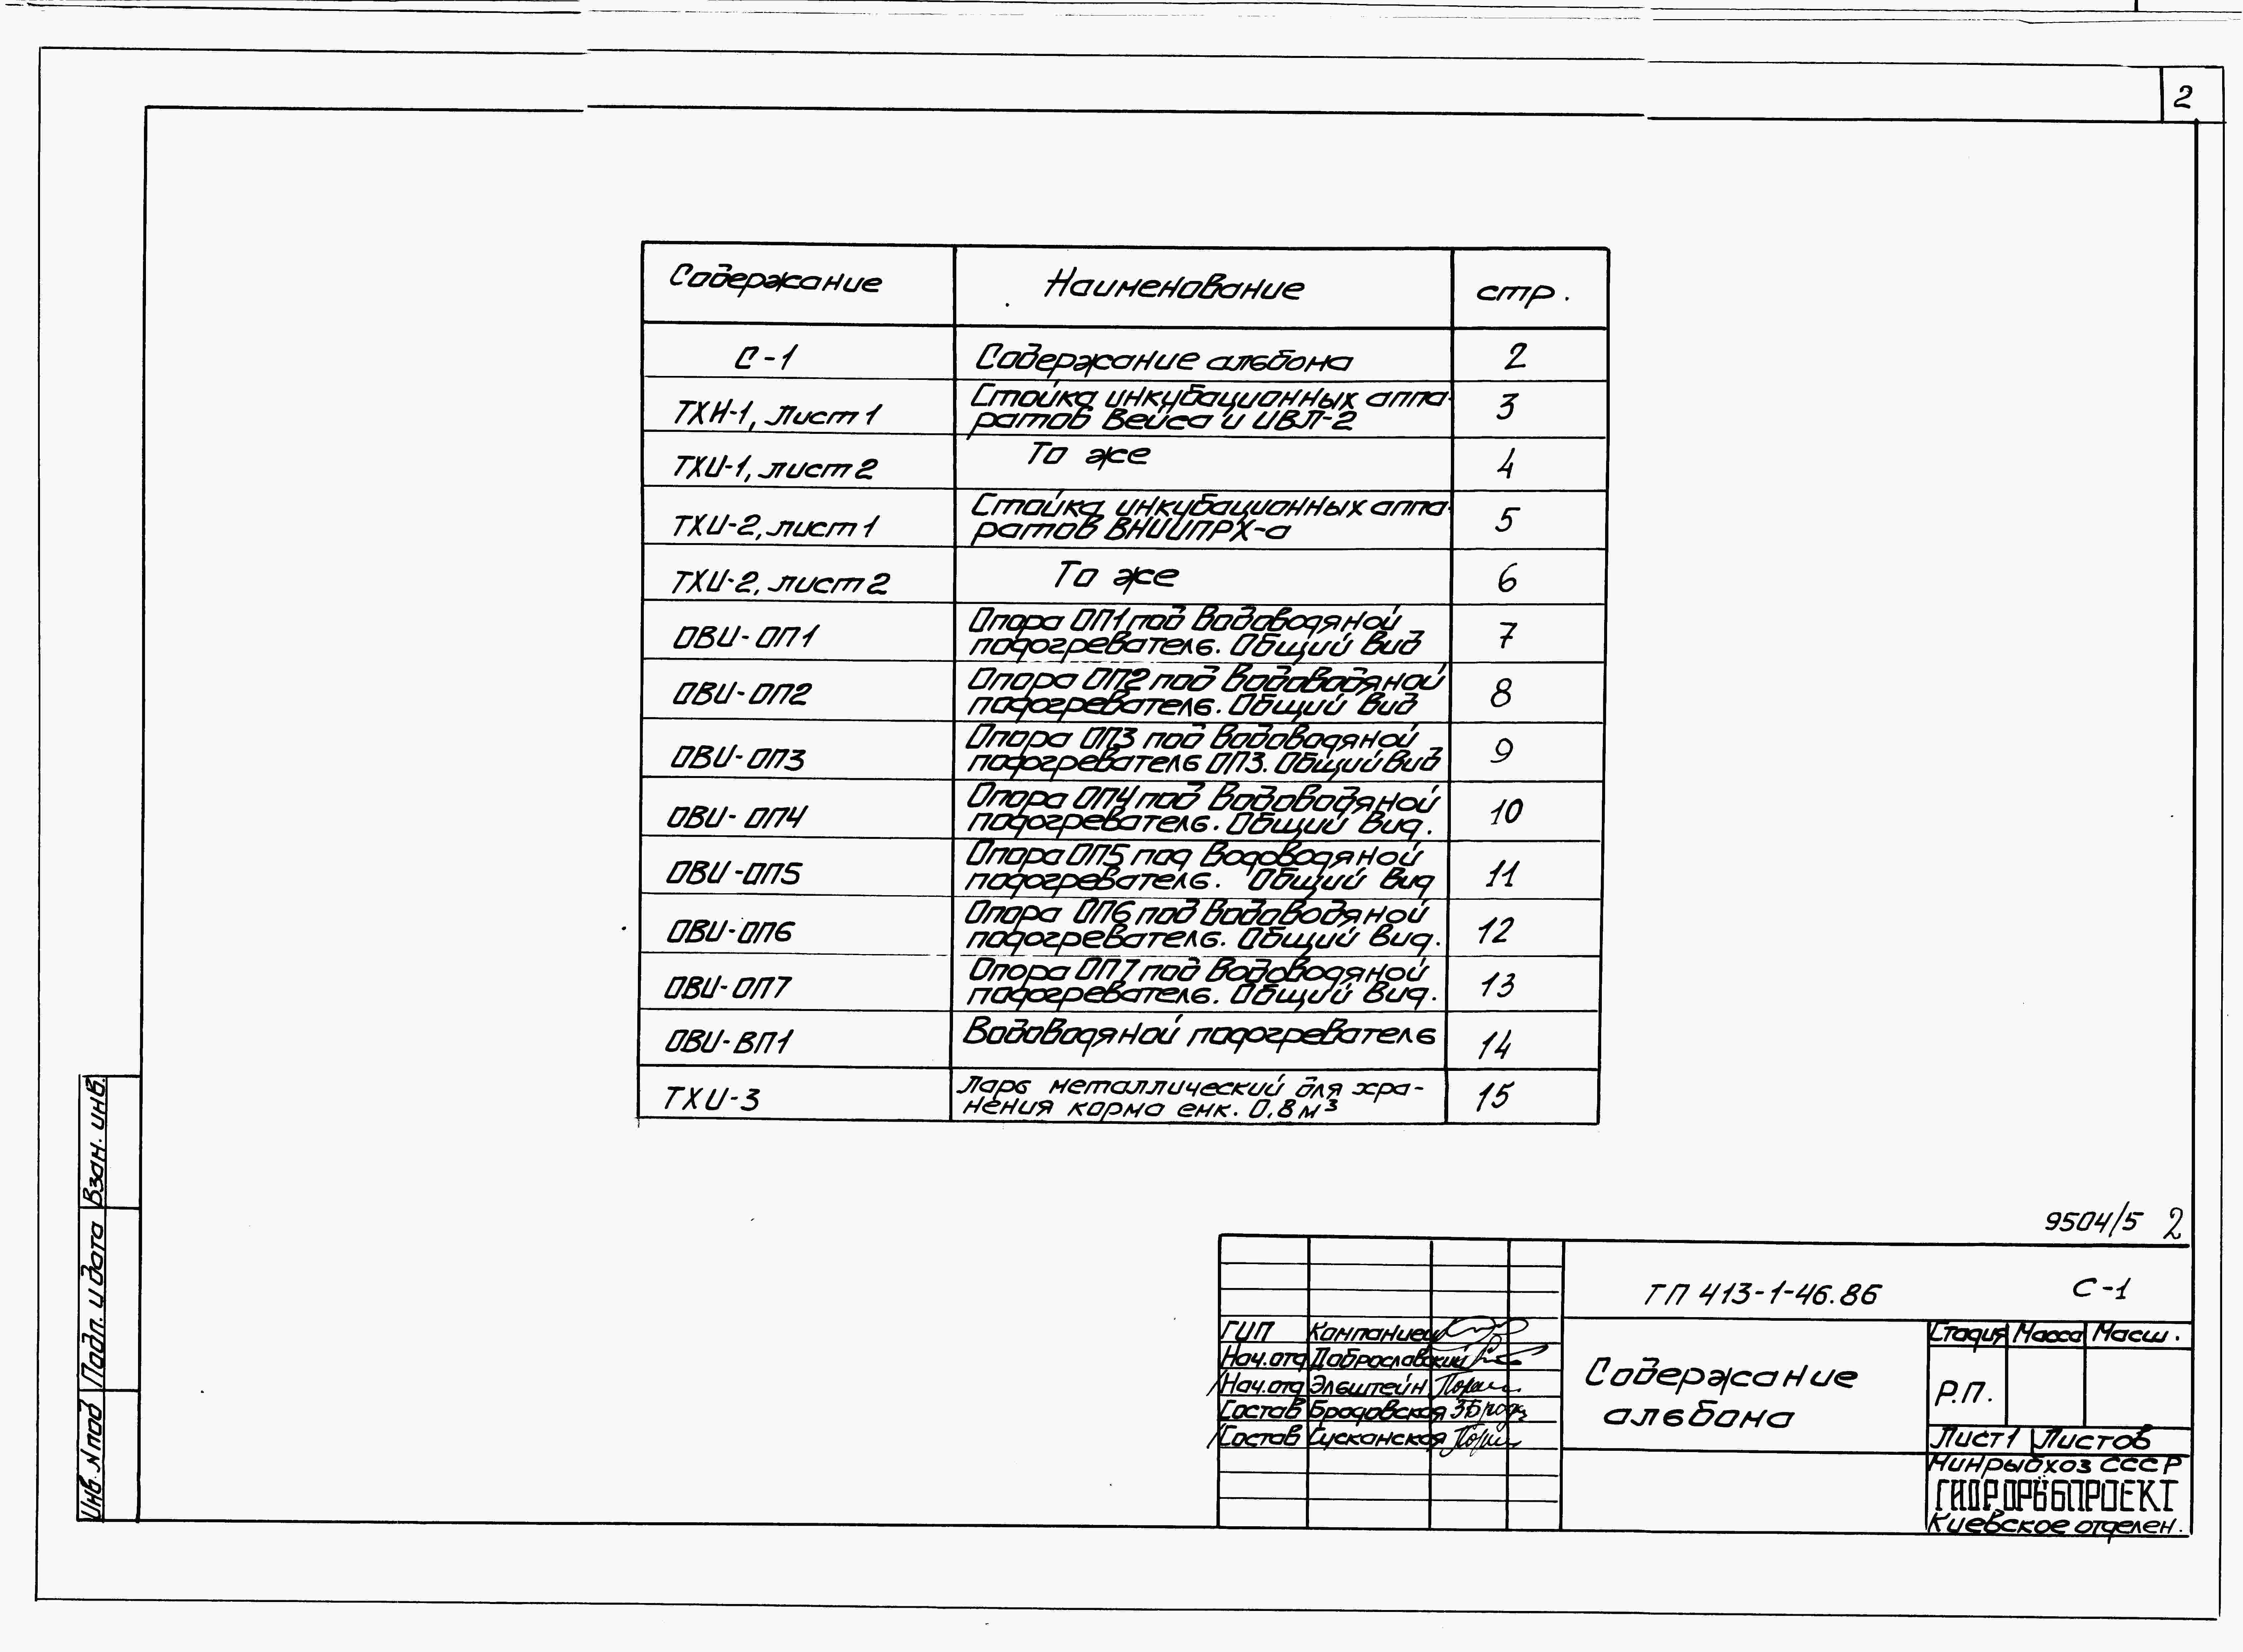 2
Содержание Наименование стр.
С-1 Содержание альбома 2
ТХИ-1, лист 1 Стойка инкубационных аппа-
ратов Вейса и ИВЛ-2 3
ТХИ-1, лист 2 То же 4
ТХИ-2, лист 1 Стойка инкубационных аппа-
ратов ВНИИПРХ-а 5
ТХИ-2, лист 2 То же 6
ОВИ-ОП1 Опора ОП1 под водоводяной
подогреватель. Общий вид 7
ОВИ-ОП2 Опора ОП2 под водоводяной
подогреватель. Общий вид 8
ОВИ-ОП3 Опора ОП3 под водоводяной
подогреватель ОП3. Общий вид 9
ОВИ-ОП4 Опора ОП4 под водоводяной
подогреватель. Общий вид. 10
ОВИ-ОП5 Опора ОП5 под водоводяной
подогреватель. Общий вид 11
ОВИ-ОП6 Опора ОП6 под водоводяной
подогреватель. Общий вид. 12
ОВИ-ОП7 Опора ОП7 под водоводяной
подогреватель. Общий вид. 13
ОВИ-ВП1 Водоводяной подогреватель 14
ТХИ-3 Ларь металлический для хра-
нения корма емк. 0,8 м³ 15
Взан. инв.
Подп. и дата
Инв. N под
9504/5 2
ТП 413-1-46.86 С-1
ГИП Компаниец
Нач.отд Доброславский
Нач.отд Эльштейн
Состав Бродовская
Состав Сусканская
Содержание
альбома
Стадия Масса Масш.
Р.П.
Лист 1 Листов
Минрыбхоз СССР
ГИДРОРЫБПРОЕКТ
Киевское отделен.